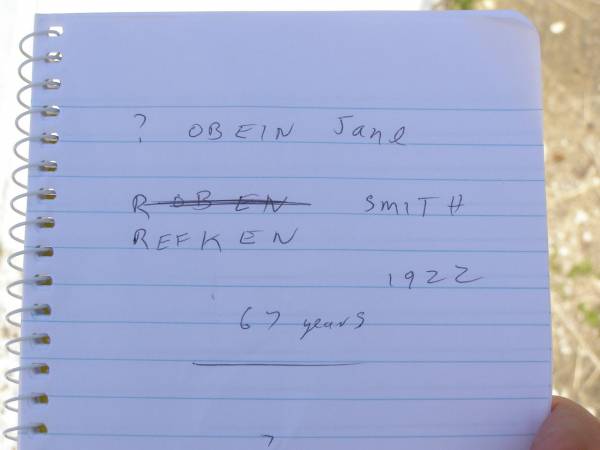 ? OBEIN Jane
ROBEN SMITH
REFKEN
1922
67 years
?